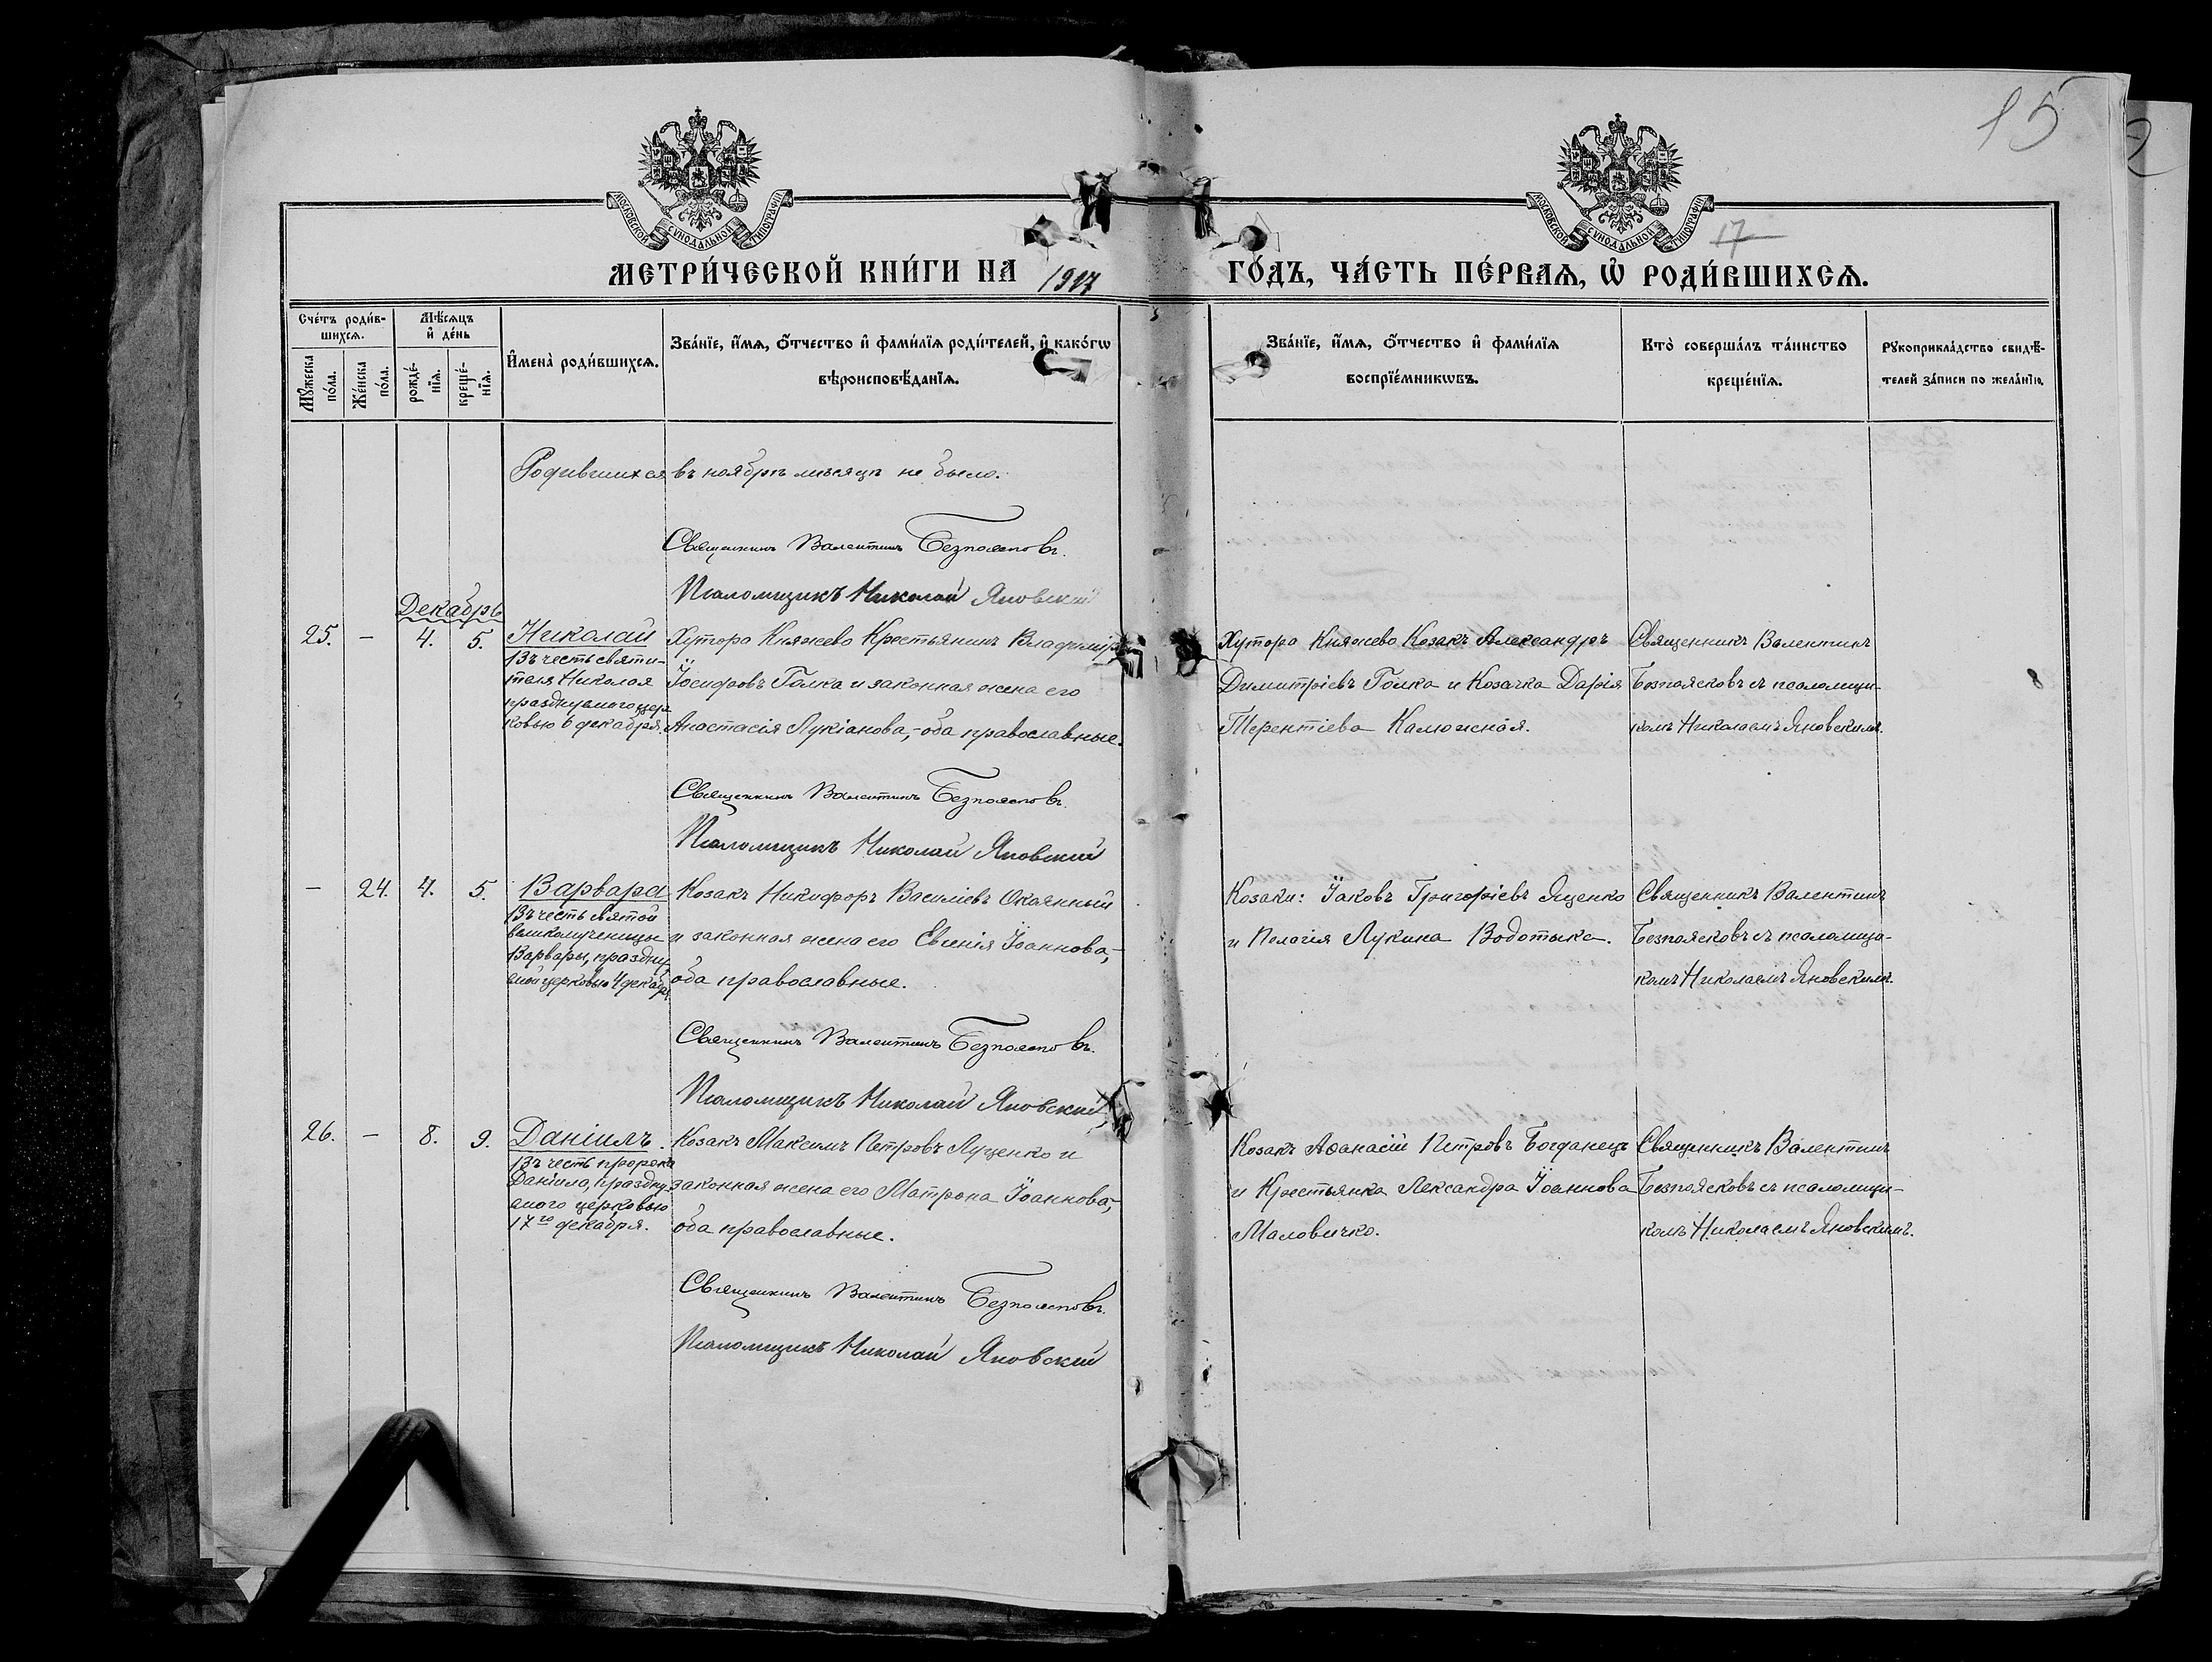 15
17
МОСКОВСКОЙ СѴНОДАЛЬНОЙ ТИПОГРАФІИ
МОСКОВСКОЙ СѴНОДАЛЬНОЙ ТИПОГРАФІИ
МЕТРИ́ЧЕСКОЙ КНИ́ГИ НА 1917 ГО́ДЪ, ЧА́СТЬ ПЕ́РВАѦ, Ѡ РОДИ́ВШИХСѦ.
Сче́тъ роди́в-
шихсѧ.
Мѣ́сѧцъ
и҆ де́нь
Мꙋ́жеска
по́ла.
Же́нска
по́ла.
рожде́-
нїѧ.
креще́-
нїѧ.
И҆мена̀ роди́вшихсѧ.
Зва́нїе, и҆́мѧ, ѻ҆́тчество и҆ фами́лїѧ роди́телей, и҆ како́гѡ
вѣроисповѣ́данїѧ.
Зва́нїе, и҆́мѧ, ѻ҆́тчество и҆ фами́лїѧ
воспрїе́мникѡвъ.
Кто̀ соверша́лъ та́инство
креще́нїѧ.
Рꙋкоприкла́дство свидѣ́-
телей за́писи по жела́нїю.
Родившихся въ ноябрѣ мѣсяцѣ не было.
Священникъ Валентинъ Безпоясковъ.
Псаломщикъ Николай Яновский
Декабрь
25. – 4. 5. Николай
Въ честь святи-
теля Николая
празднуемого цер
ковью 6 декабря.
Хутора Княжево Крестьянинъ Владимiръ
Iосифовъ Голка и законная жена его
Анастасiя Лукiанова,- оба православные.
Хутора Княжево Козакъ Александръ
Димитрiевъ Голка и Козачка Дарiя
Терентiева Калюжная.
Священникъ Валентинъ
Безпоясковъ съ псаломщи-
комъ Николаемъ Яновскимъ.
Священникъ Валентинъ Безпоясковъ.
Псаломщикъ Николай Яновский
– 24. 4. 5. Варвара
Въ честь святой
великомученицы
Варвары, праздну
емой церковью 4 декабря
Козакъ Никифоръ Василiевъ Окаянный
и законная жена его Евгенiя Iоаннова,-
оба православные.
Козаки: Iаковъ Григорiевъ Яценко
и Пелагiя Лукина Водотыка.
Священникъ Валентинъ
Безпоясковъ съ псаломщи-
комъ Николаемъ Яновскимъ.
Священникъ Валентинъ Безпоясковъ.
Псаломщикъ Николай Яновский
26. – 8. 9. Данiилъ.
Въ честь пророка
Данiила, праздну
емого церковью
17го декабря.
Козакъ Максимъ Петровъ Луценко и
законная жена его Матрона Iоаннова,-
оба православные.
Козакъ Аѳанасiй Петровъ Богданецъ
и Крестьянка Александра Iоаннова
Маловичко.
Священникъ Валентинъ
Безпоясковъ съ псаломщи-
комъ Николаемъ Яновскимъ.
Священникъ Валентинъ Безпоясковъ.
Псаломщикъ Николай Яновский